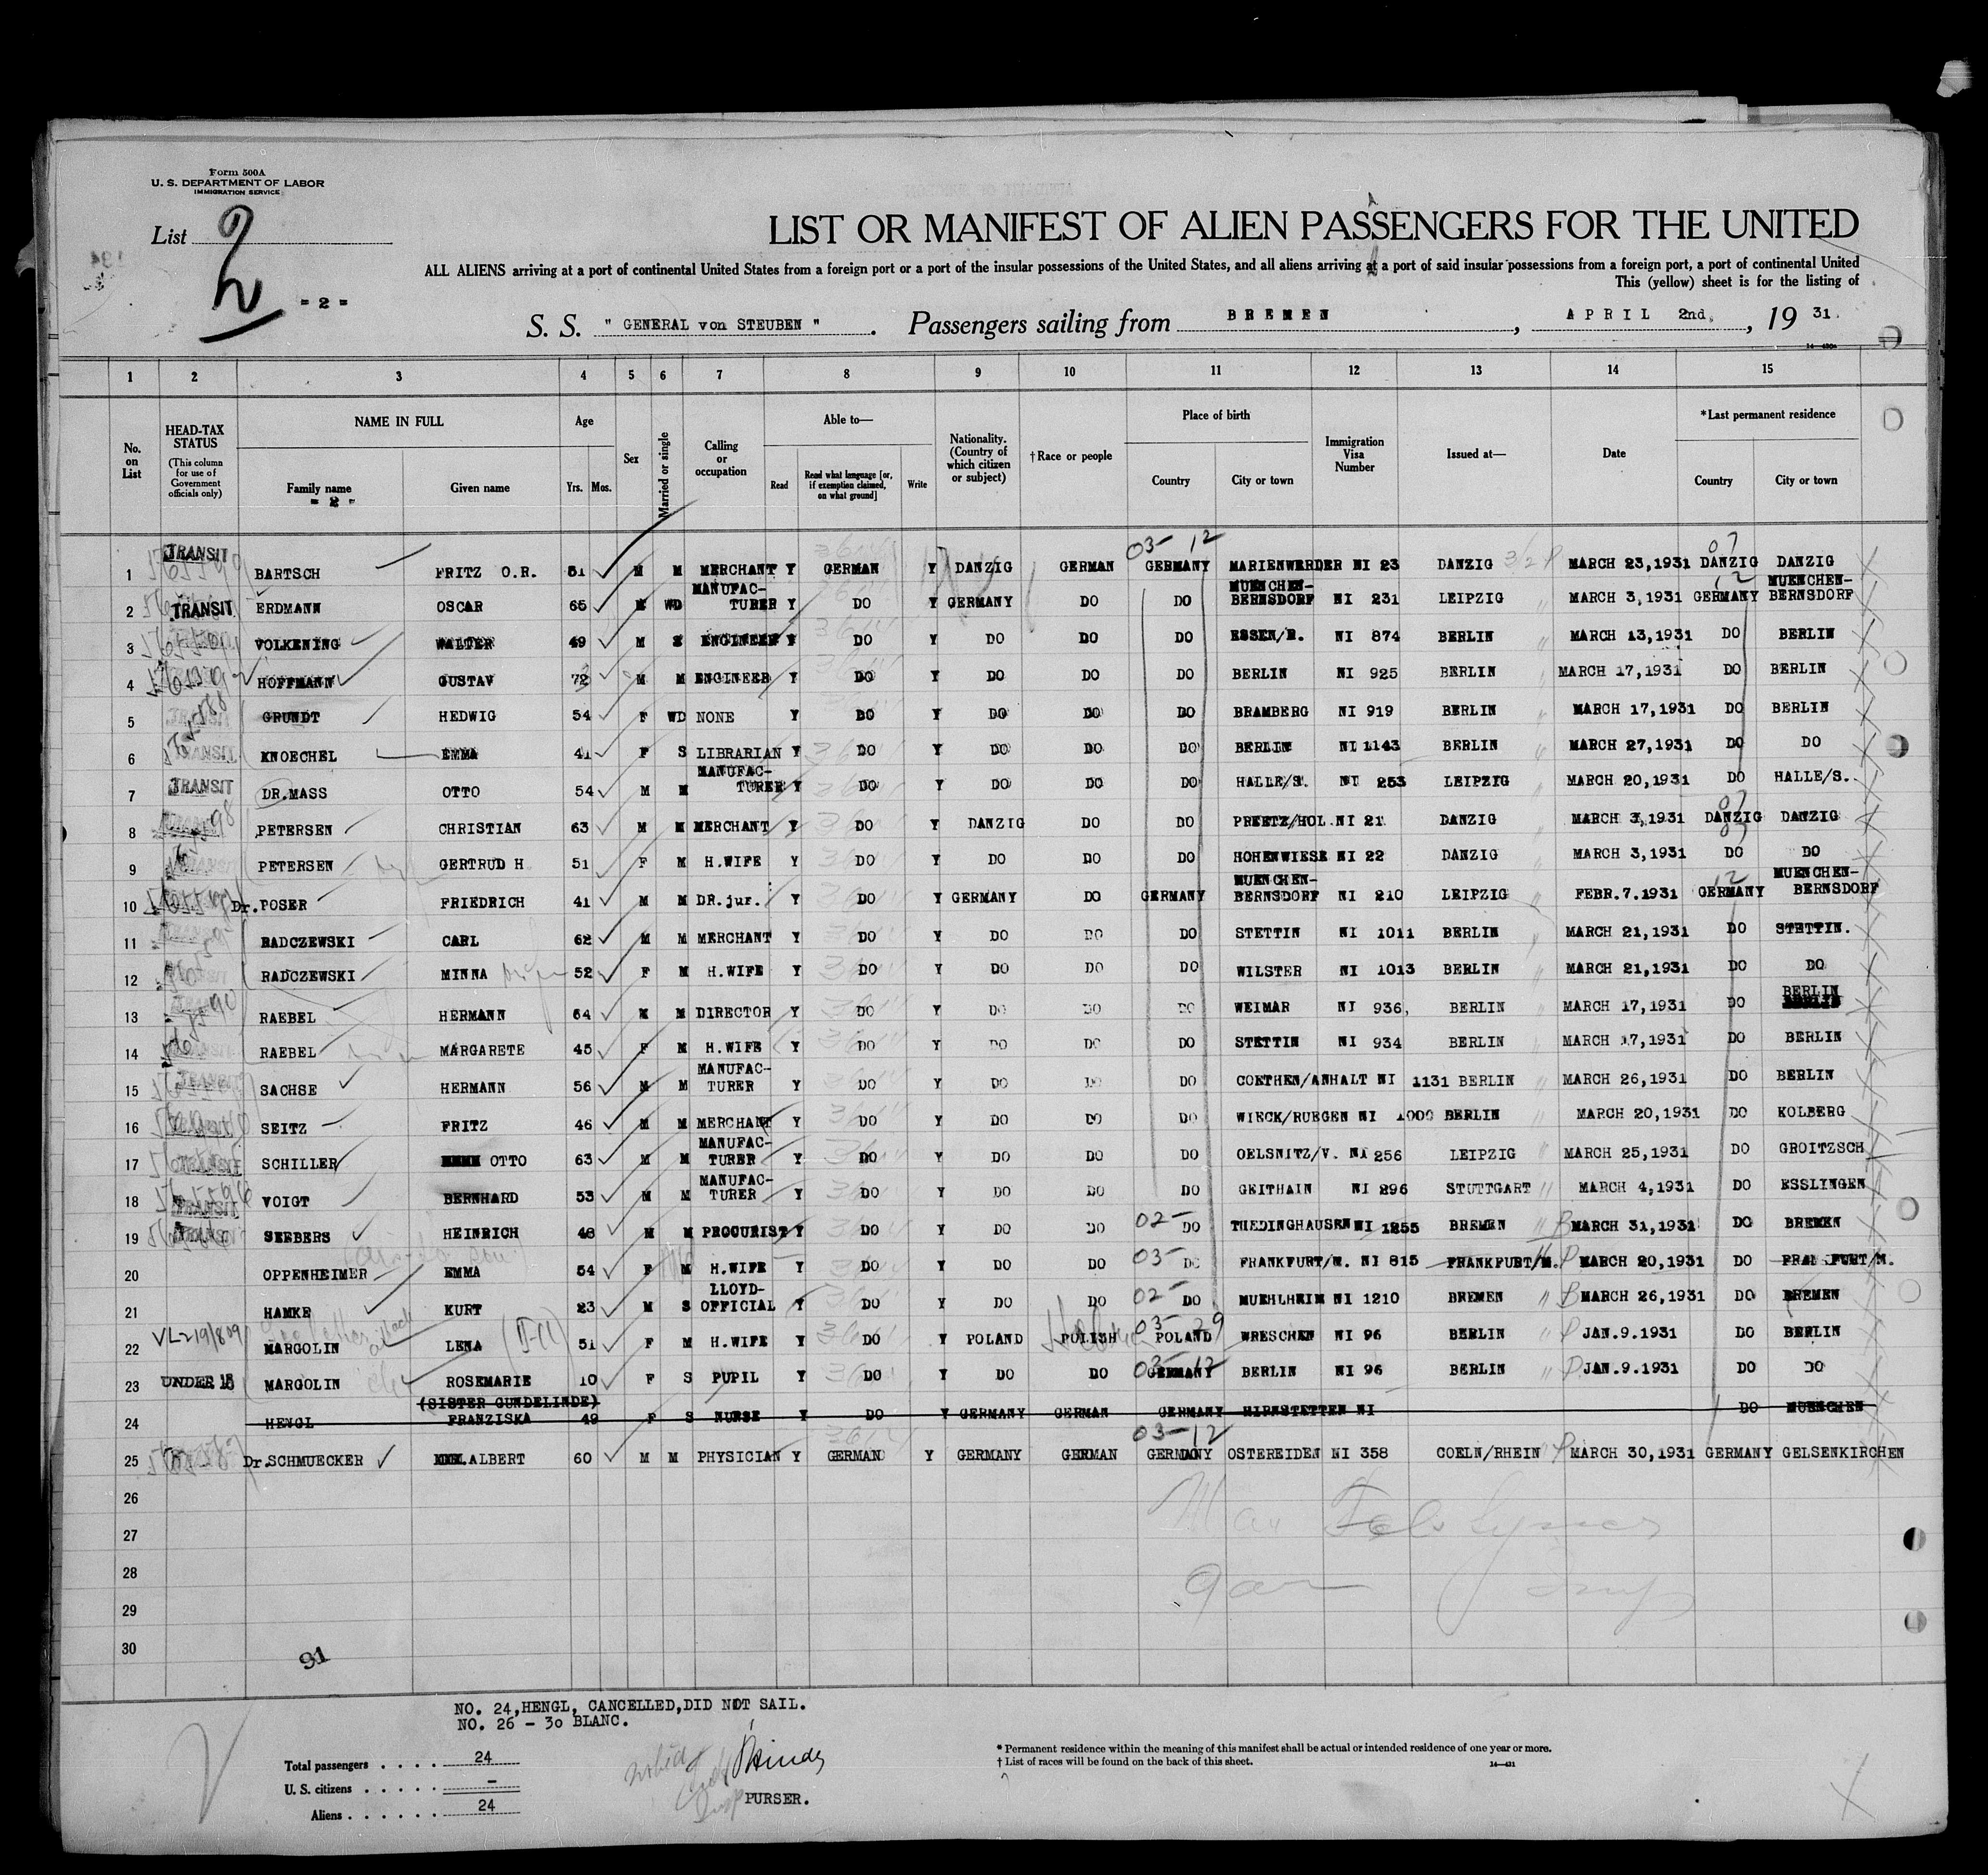 Form 500A
U. S. DEPARTMENT OF LABOR
IMMIGRATION SERVICE
List 2
- 2 -
LIST OR MANIFEST OF ALIEN PASSENGERS FOR THE UNITED
ALL ALIENS arriving at a port of continental United States from a foreign port or a port of the insular possessions of the United States, and all aliens arriving at a port of said insular possessions from a foreign port, a port of continental United
This (yellow) sheet is for the listing of
S. S. " GENERAL von STEUBEN ". Passengers sailing from BREMEN, APRIL 2nd, 19 31.
1 2 3 4 5 6 7 8 9 10 11 12 13 14 15
No. on List
HEAD-TAX STATUS (This column for use of Government officials only)
NAME IN FULL Family name - 2 - Given name
Age Yrs. Mos.
Sex
Married or single
Calling or occupation
Able to— Read Read what language [or, if exemption claimed, on what ground] Write
Nationality. (Country of which citizen or subject)
†Race or people
Place of birth Country City or town
Immigration Visa Number
Issued at—
Date
*Last permanent residence Country City or town
03- 12 07
1 TRANSIT BARTSCH FRITZ O.R. 51 M M MERCHANT Y GERMAN Y DANZIG GERMAN GERMANY MARIENWERDER NI 23 DANZIG MARCH 23,1931 DANZIG DANZIG
2 TRANSIT ERDMANN OSCAR 65 M WD MANUFAC-TURER Y DO Y GERMANY DO DO MUENCHEN-BERNSDORF NI 231 LEIPZIG MARCH 3,1931 GERMANY MUENCHEN-BERNSDORF
3 VOLKENING WALTER 49 M S ENGINEER Y DO Y DO DO DO ESSEN/R. NI 874 BERLIN MARCH 13,1931 DO BERLIN
4 HOFFMANN GUSTAV 72 M M ENGINEER Y DO Y DO DO DO BERLIN NI 925 BERLIN MARCH 17,1931 DO BERLIN
5 GRUNDT HEDWIG 54 F WD NONE Y DO Y DO DO DO BRAMBERG NI 919 BERLIN MARCH 17,1931 DO BERLIN
6 TRANSIT KNOECHEL EMMA 41 F S LIBRARIAN Y DO Y DO DO DO BERLIN NI 1143 BERLIN MARCH 27,1931 DO DO
7 TRANSIT DR.MASS OTTO 54 M M MANUFAC-TURER Y DO Y DO DO DO HALLE/S. NI 253 LEIPZIG MARCH 20,1931 DO HALLE/S.
8 PETERSEN CHRISTIAN 63 M M MERCHANT Y DO Y DANZIG DO DO PREETZ/HOL. NI 21 DANZIG MARCH 3,1931 DANZIG DANZIG
9 PETERSEN GERTRUD H 51 F M H.WIFE Y DO Y DO DO DO HOHENWIESE NI 22 DANZIG MARCH 3,1931 DO DO
10 Dr. POSER FRIEDRICH 41 M M DR.jur. Y DO Y GERMANY DO GERMANY MUENCHEN-BERNSDORF NI 210 LEIPZIG FEBR.7.1931 GERMANY MUENCHEN-BERNSDORF
11 RADCZEWSKI CARL 62 M M MERCHANT Y DO Y DO DO DO STETTIN NI 1011 BERLIN MARCH 21,1931 DO STETTIN.
12 RADCZEWSKI MINNA 52 F M H.WIFE Y DO Y DO DO DO WILSTER NI 1013 BERLIN MARCH 21,1931 DO DO
13 RAEBEL HERMANN 64 M M DIRECTOR Y DO Y DO DO DO WEIMAR NI 936, BERLIN MARCH 17,1931 DO BERLIN
14 RAEBEL MARGARETE 45 F M H.WIFE Y DO Y DO DO DO STETTIN NI 934 BERLIN MARCH 17,1931 DO BERLIN
15 TRANSIT SACHSE HERMANN 56 M M MANUFAC-TURER Y DO Y DO DO DO COETHEN/ANHALT NI 1131 BERLIN MARCH 26,1931 DO BERLIN
16 SEITZ FRITZ 46 M M MERCHANT Y DO Y DO DO DO WIECK/RUEGEN NI 1000 BERLIN MARCH 20,1931 DO KOLBERG
17 TRANSIT SCHILLER OTTO 63 M M MANUFAC-TURER Y DO Y DO DO DO OELSNITZ/V. NI 256 LEIPZIG MARCH 25,1931 DO GROITZSCH
18 TRANSIT VOIGT BERNHARD 53 M M MANUFAC-TURER Y DO Y DO DO DO GEITHAIN NI 296 STUTTGART MARCH 4,1931 DO ESSLINGEN
19 SEEBERS HEINRICH 48 M M PROCURIST Y DO Y DO DO 02- DO THEDINGHAUSEN NI 1255 BREMEN MARCH 31,1931 DO BREMEN
20 OPPENHEIMER EMMA 54 F M H.WIFE Y DO Y DO DO 03- DO FRANKFURT/M. NI 815 FRANKFURT/M. MARCH 20,1931 DO FRANKFURT/M.
21 HAMKE KURT 23 M S LLOYD-OFFICIAL Y DO Y DO DO 02- DO MUEHLHEIM NI 1210 BREMEN MARCH 26,1931 DO BREMEN
22 MARGOLIN LENA 51 F M H.WIFE Y DO Y POLAND POLISH Hebrew 03-29 POLAND WRESCHEN NI 96 BERLIN JAN.9.1931 DO BERLIN
23 UNDER 16 MARGOLIN ROSEMARIE 10 F S PUPIL Y DO Y DO DO 03-12 GERMANY BERLIN NI 96 BERLIN JAN.9.1931 DO DO
24 HENGL (SISTER GUNDELINDE) FRANZISKA 49 F S NURSE Y DO Y GERMANY GERMAN GERMANY HIRNSTETTEN NI DO MUENCHEN
25 Dr.SCHMUECKER ALBERT 60 M M PHYSICIAN Y GERMAN Y GERMANY GERMAN 03-12 GERMANY OSTEREIDEN NI 358 COELN/RHEIN MARCH 30,1931 GERMANY GELSENKIRCHEN
26
27
28
29
30
91
NO. 24,HENGL, CANCELLED,DID NOT SAIL.
NO. 26 - 30 BLANC.
Total passengers . . . . 24
U. S. citizens . . . . . –
Aliens . . . . . . 24
PURSER.
* Permanent residence within the meaning of this manifest shall be actual or intended residence of one year or more.
† List of races will be found on the back of this sheet.
14—431